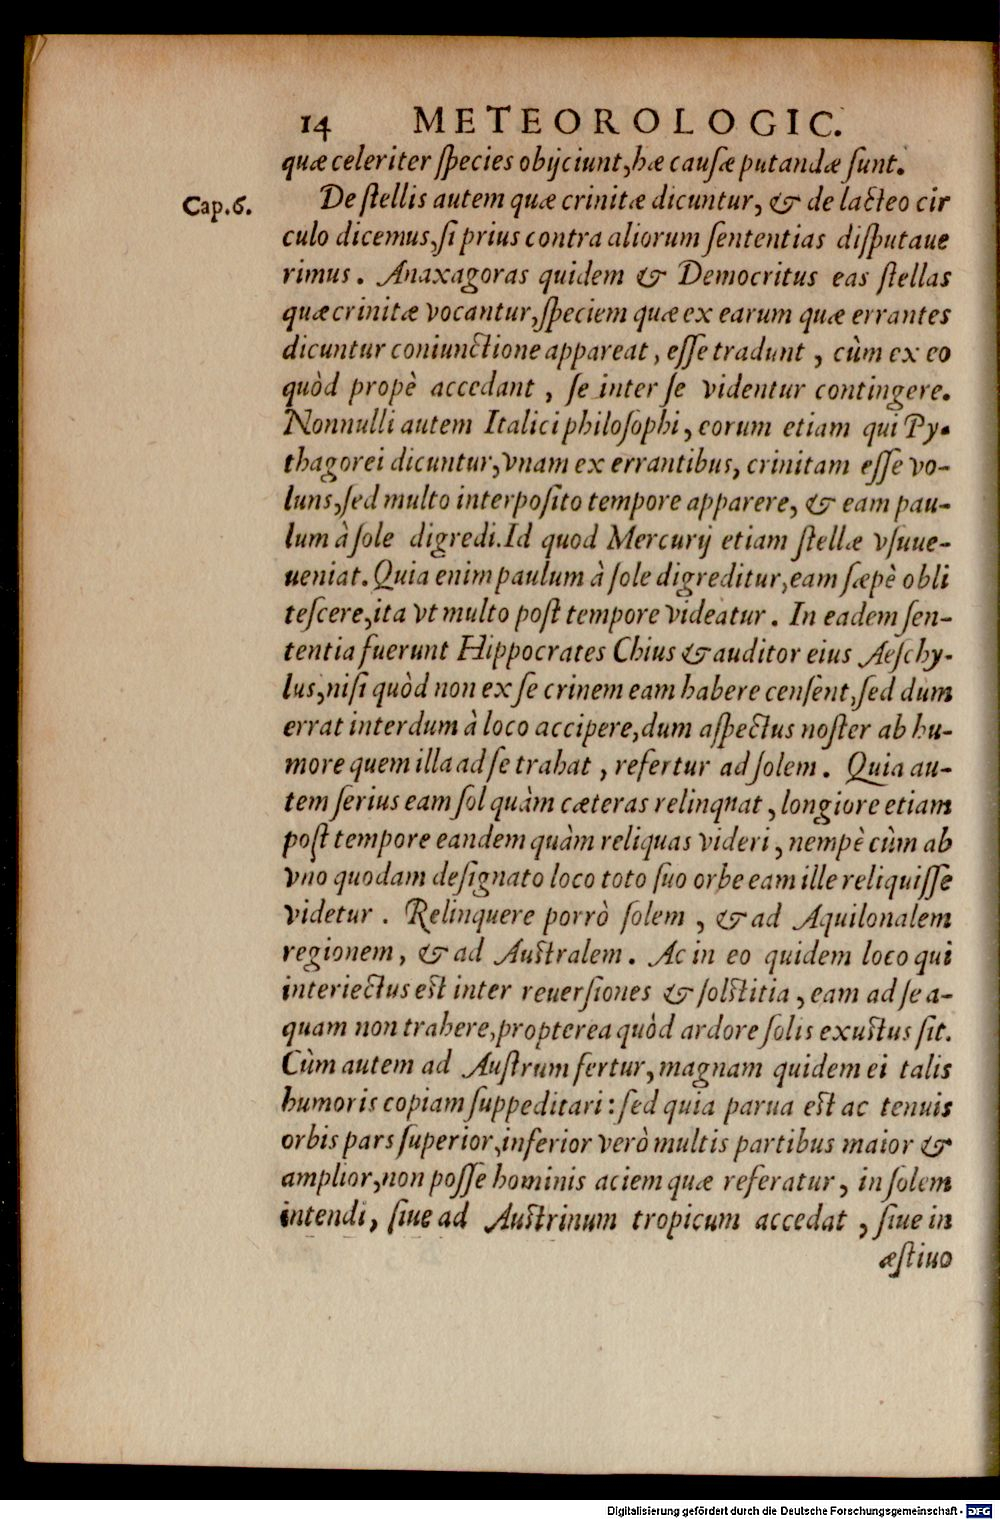 14 METEOROLOGIC.
quæ celeriter ſpecies obijciunt, hæ cauſæ putandæ ſunt.
Cap. 6. De ſtellis autem quæ crinitæ dicuntur, & de lacteo cir
culo dicemus, ſi prius contra aliorum ſententias diſputaue
rimus. Anaxagoras quidem & Democritus eas ſtellas
quæ crinitæ vocantur, ſpeciem quæ ex earum quæ errantes
dicuntur coniunctione appareat, eſſe tradunt, cùm ex eo
quòd propè accedant, ſe inter ſe videntur contingere.
Nonnulli autem Italici philoſophi, eorum etiam qui Py-
thagorei dicuntur, vnam ex errantibus, crinitam eſſe vo-
luns, ſed multo interpoſito tempore apparere, & eam pau-
lum à ſole digredi. Id quod Mercurij etiam ſtellæ vſuue-
ueniat. Quia enim paulum à ſole digreditur, eam ſæpè obli
teſcere, ita vt multo poſt tempore videatur. In eadem ſen-
tentia fuerunt Hippocrates Chius & auditor eius Aeſchy-
lus, niſi quòd non ex ſe crinem eam habere cenſent, ſed dum
errat interdum à loco accipere, dum aſpectus noſter ab hu-
more quem illa ad ſe trahat, refertur ad ſolem. Quia au-
tem ſerius eam ſol quàm cæteras relinquat, longiore etiam
poſt tempore eandem quàm reliquas videri, nempè cùm ab
vno quodam deſignato loco toto ſuo orbe eam ille reliquiſſe
videtur. Relinquere porrò ſolem, & ad Aquilonalem
regionem, & ad Auſtralem. Ac in eo quidem loco qui
interiectus eſt inter reuerſiones & ſolſtitia, eam ad ſe a-
quam non trahere, propterea quòd ardore ſolis exuſtus ſit.
Cùm autem ad Auſtrum fertur, magnam quidem ei talis
humoris copiam ſuppeditari: ſed quia parua eſt ac tenuis
orbis pars ſuperior, inferior verò multis partibus maior &
amplior, non poſſe hominis aciem quæ referatur, in ſolem
intendi, ſiue ad Auſtrinum tropicum accedat, ſiue in
æſtiuo
Digitalisierung gefördert durch die Deutsche Forschungsgemeinschaft - DFG